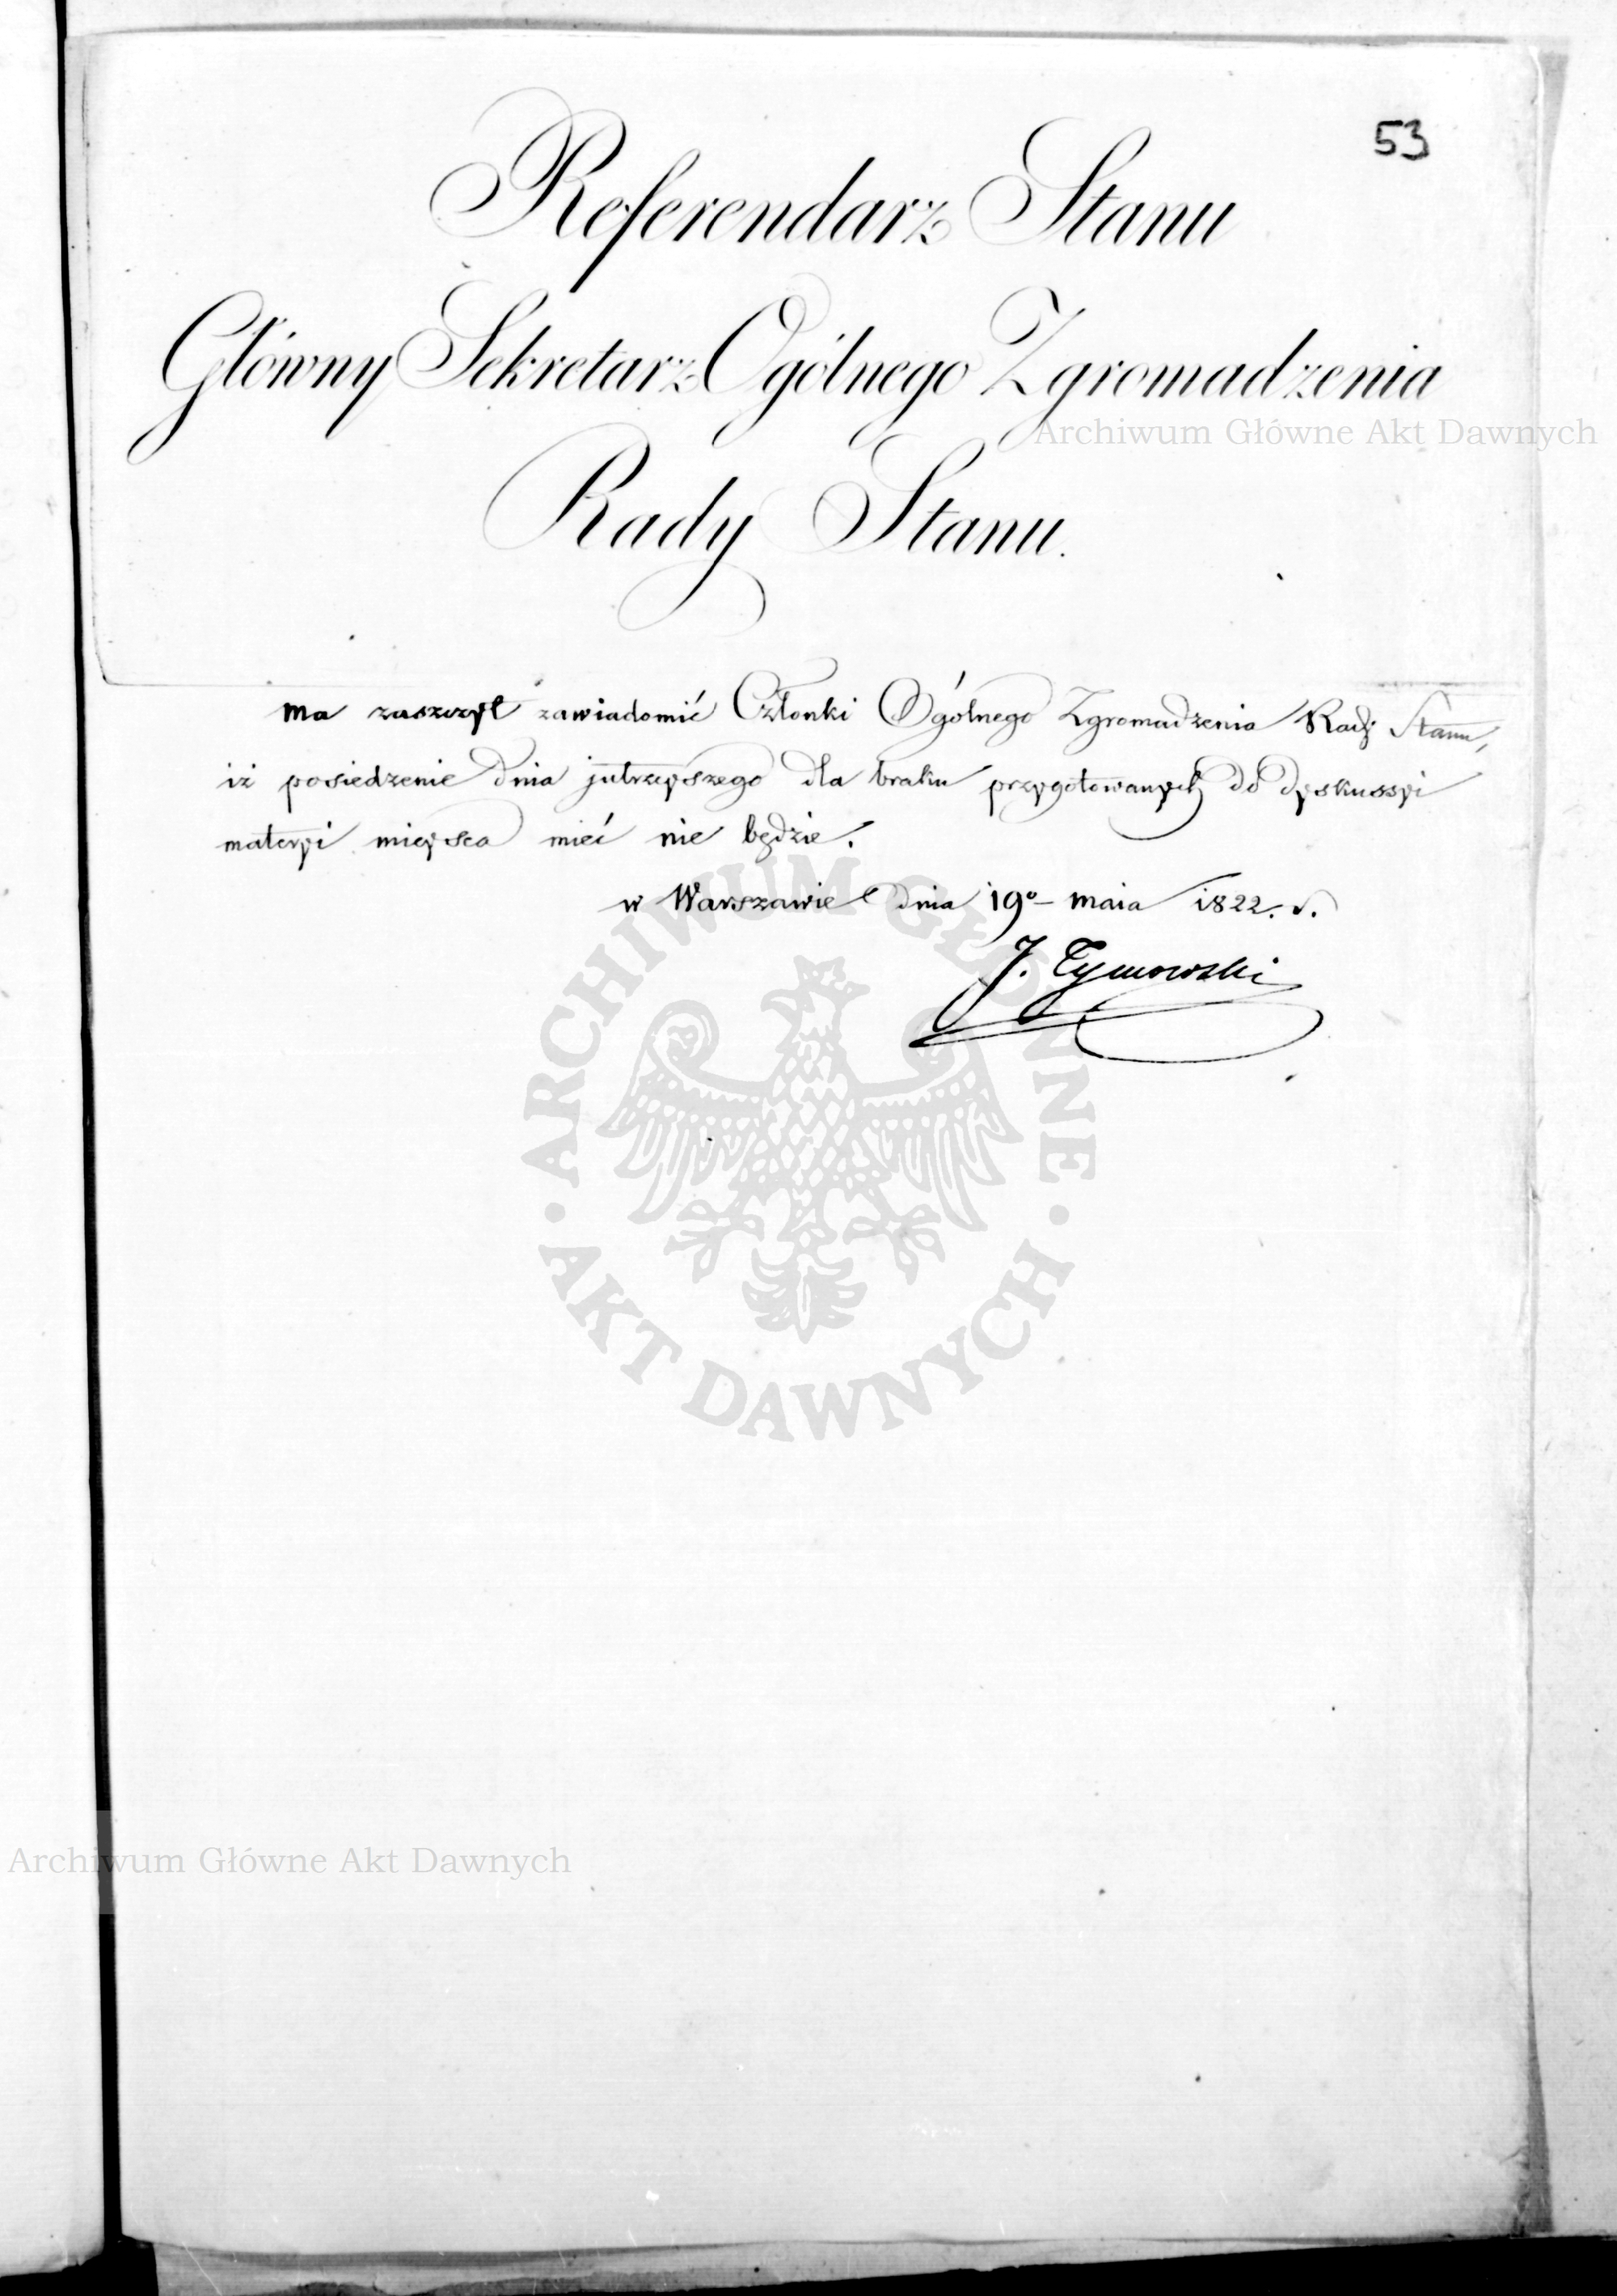 53
Referendarz Stanu
Główny Sekretarz Ogólnego Zgromadzenia
Archiwum Główne Akt Dawnych
Rady Stanu.
ma zaszczyt zawiadomić Członki Ogólnego Zgromadzenia Rady Stanu,
iż posiedzenie dnia jutrzeyszego dla braku przygotowanych do dyskussyi
materyi mieysca mieć nie będzie.
w Warszawie dnia 19º maia 1822. r.
J. Tymowski
ARCHIWUM GŁÓWNE
AKT DAWNYCH
Archiwum Główne Akt Dawnych